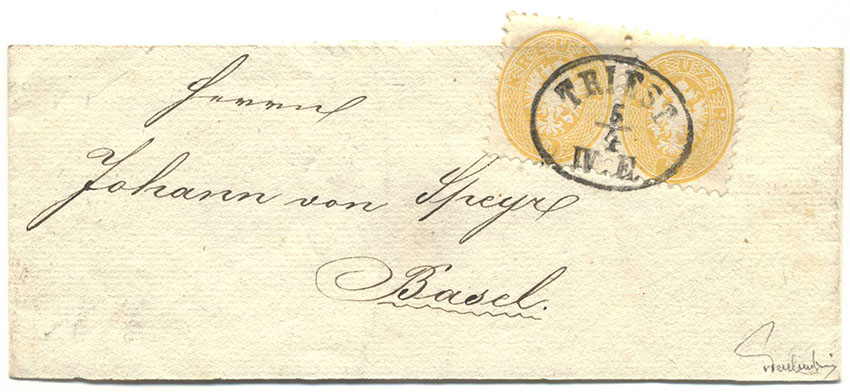 KREUZER
KREUZER
TRIEST
5/4
IV. E.
Herrn
Johann von Speyr
Basel.